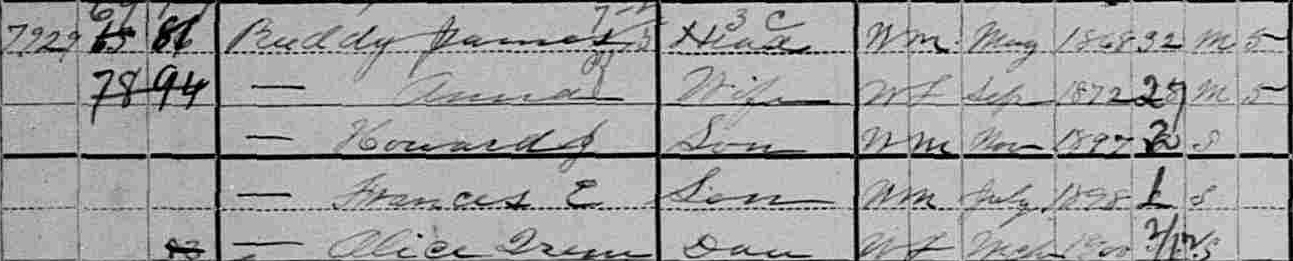 7929 65 86 Ruddy James Head W M May 1868 32 M 5
78 94 — Anna Wife W F Sep 1872 27 M 5
— Howard J Son W M Nov 1897 2 S
— Frances E Son W M July 1898 1 S
— Alice Irene Dau W F Mch 1900 2/12 S